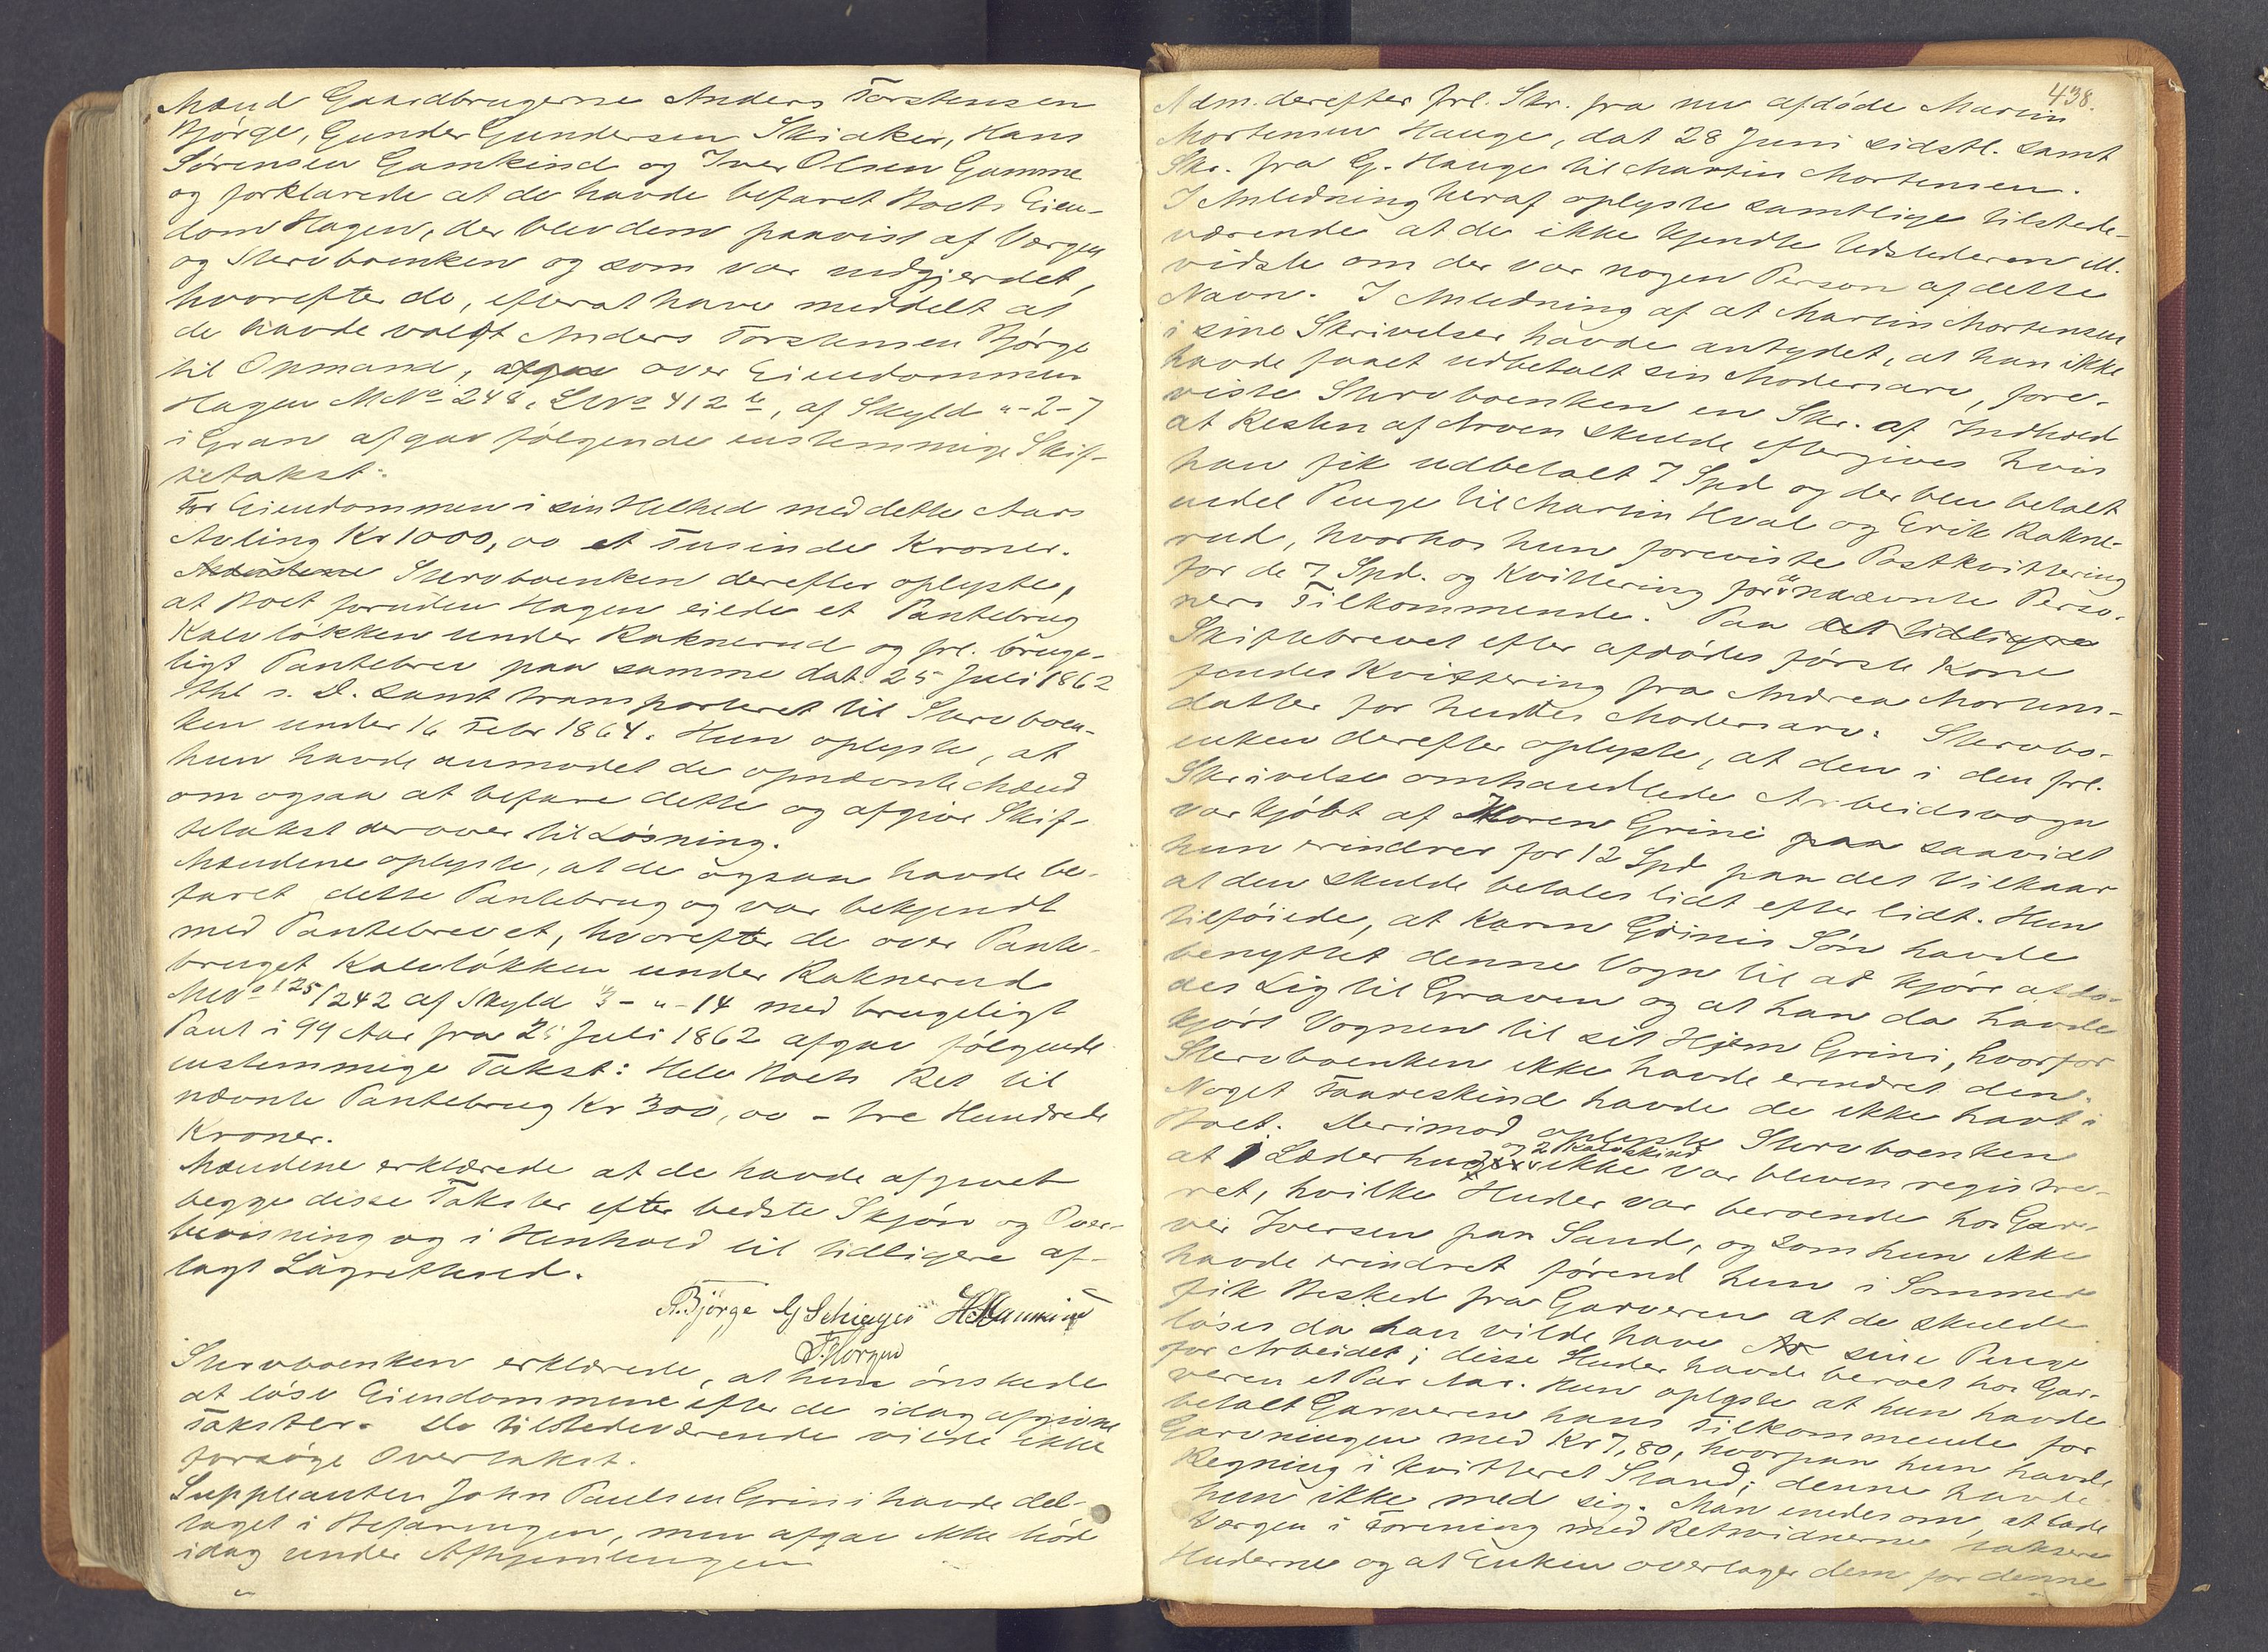 Mænd Gaardbrugerne Anders Torstensen
Bjørge, Gunder Gundersen Skiaker, Hans
Sørensen Gamkind og Iver Olsen Gamme
og forklarede at de havde befaret Boets Eien-
dom Hagen, der blev dem paavist af Værgen
og Stervboenken og som var indgjerdet,
hvorefter de, efterat have meddelt at
de havde valgt Anders Torstensen Bjørge
til Opmand, afgav over Eiendommen
Hagen MNo 248, LNo 412 b, af Skyld "-2-7
i Gran afgav følgende enstemmige Skif-
tetakst:
For Eiendommen i sin Helhed med dette Aars
Avling Kr 1000,00 et Tusinde Kroner.
Stervboenken derefter oplyste,
at Boet foruden Hagen eiede et Pantebrug
Kalvløkken under Raknerud og frl. bruge-
ligt Pantebrev paa samme dat. 25 Juli 1862
thl. s. D. samt transporteret til Stervboen-
ken under 16 Febr 1864. Hun oplyste, at
hun havde anmodet de opnævnte Mænd
om ogsaa at befare dette og afgive Skif-
tetakst derover til Løsning.
Mændene oplyste, at de ogsaa havde be-
faret dette Pantebrug og var bekjendt
med Pantebrevet, hvorefter de over Pante-
bruget Kalvløkken under Raknerud
MNo 125/242 af Skyld 3-"-14 med brugeligt
Pant i 99 Aar fra 25 Juli 1862 afgav følgende
enstemmige Takst: Hele Boets Ret til
nævnte Pantebrug Kr 300,00 - tre Hundrede
Kroner.
Mændene erklærede at de havde afgivet
begge disse Takster efter bedste Skjøn og Over-
bevisning og i Henhold til tidligere af-
lagt Lagretteed.
A. Bjørge G Schiager
Stervboenken erklærede, at hun ønskede
at løse Eiendommene efter de idag afgivne
Takster. De tilstedeværende vilde ikke
forsøge Overtakst.
Suppleanten John Paulsen Grini havde del-
taget i Befaringen, men afgav ikke Møde
idag under Afhjemlingen
438.
Adm. derefter frl. Skr. fra nu afdøde Martin
Mortensen Hauge, dat 28 Juni sidstl. samt
Skr. fra G. Hauge til Martin Mortensen.
I Anledning heraf oplyste samtlige tilstede-
værende at de ikke kjendte Udstederen el.
vidste om der var nogen Person af dette
Navn. I Anledning af at Martin Mortensen
i sine Skrivelser havde antydet, at han ikke
havde faaet udbetalt sin Mødrenearv, fore-
viste Stervboenken en Skr. af Indhold
at Resten af Arven skulde eftergives hvis
han fik udbetalt 7 Spd og der blev betalt
endel Penge til Martin Hval og Erik Rakne-
rud, hvorhos hun foreviste Postkvittering
for de 7 Spd. og Kvittering for de nævnte Perso-
ners Tilkommende. Paa det tidligere
Skiftebrevet efter afdødes første Kone
fandtes Kvittering fra Andrea Mortens-
datter for hendes Modersarv. Stervbo-
enken derefter oplyste, at den i den frl.
Skrivelse omhandlede Arbeidsvogn
var kjøbt af Karen Grini paa saavidt
hun erindrer for 12 Spd paa det Vilkaar
at den skulde betales lidt efter lidt. Hun
tilføiede, at Karen Grinis Søn havde
benyttet denne Vogn til at kjøre afdø-
des Lig til Graven og at han da havde
kjørt Vognen til sit Hjem Grini, hvorfor
Stervboenken ikke havde erindret den.
Noget Faareskind havde de ikke havt i
Boet. Derimod oplyste Stervboenken
og 2 Kalveskind
at 1 Læderhud ikke var bleven registre-
ret, hvilke Huder var beroende hos Gar-
ver Iversen paa Sand, og som hun ikke
havde erindret førend hun i Sommer
fik Besked fra Garveren at de skulde
løses da han vilde have sine Penge
for Arbeidet; disse Huder havde beroet hos Gar-
veren et Par Aar. Hun oplyste at hun havde
betalt Garveren hans Tilkommende for
Garvningen med Kr 7,80, hvorpaa hun havde
Regning i kvitteret Stand; denne havde
hun ikke med sig. Man enedes om, at lade
Værgen i Forening med Retsvidnerne taksere
Huderne og at Enken overtager dem for denne